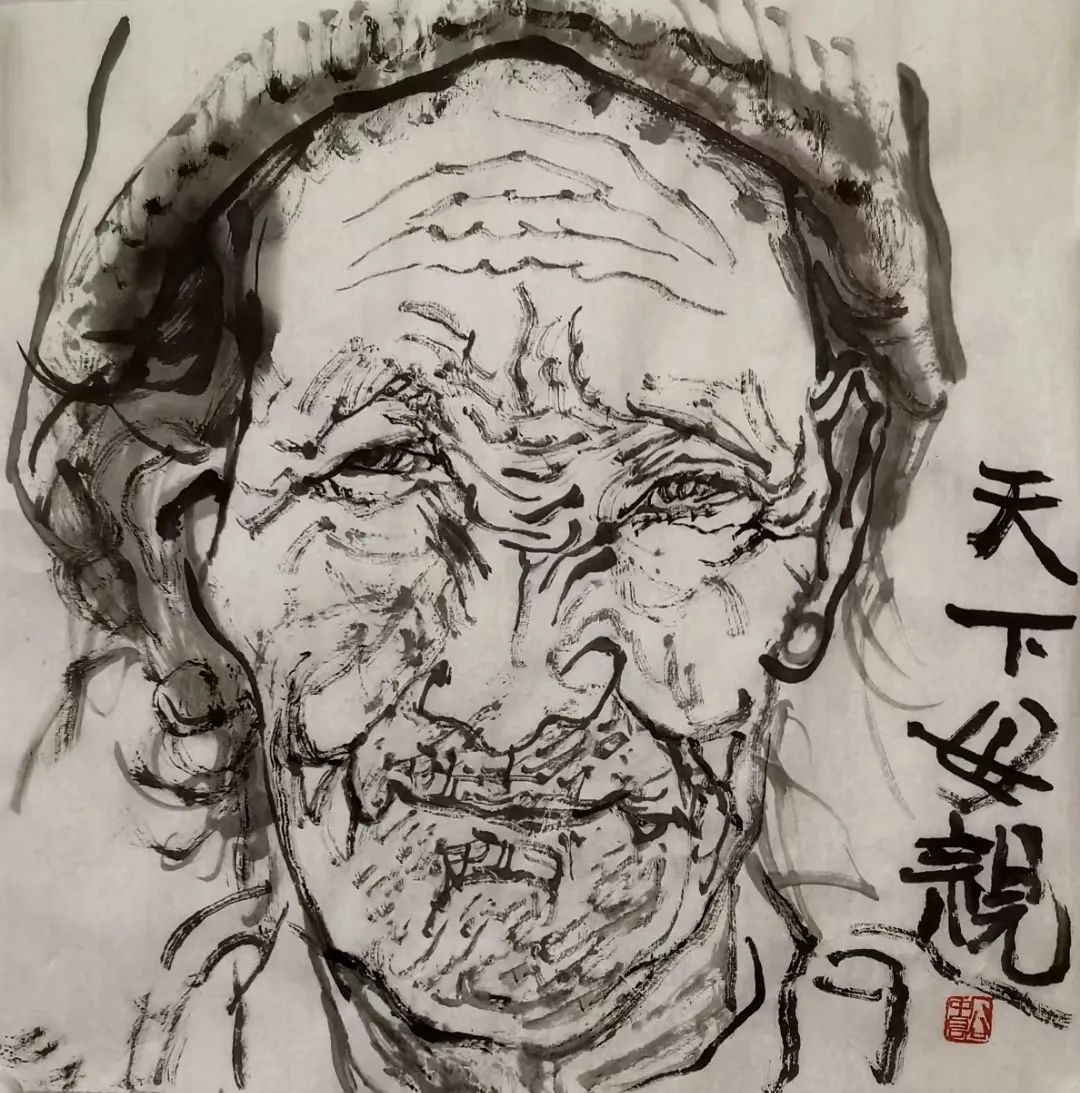 天下母親